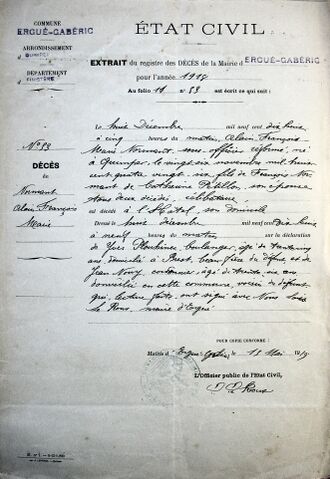 COMMUNE
ERGUÉ-GABÉRIC
ARRONDISSEMENT
QUIMPER
DÉPARTEMENT
FINISTÈRE
ÉTAT CIVIL
EXTRAIT du registre des DÉCÈS de la Mairie d ERGUÉ-GABÉRIC
pour l'année 1918
Au folio 11 n° 53 est écrit ce qui suit :
N° 53
DÉCÈS
de
Normant
Alain François
Marie
Le huit Décembre mil neuf cent dix huit
à cinq heures du matin, Alain François
Marie Normant, sous-officier réformé, né à
Quimper, le vingt six novembre mil huit
cent quatre vingt six, fils de François Nor
mant, de Catherine Petillon, son épouse
tous deux décédés, célibataire,
est décédé à l'Hôtel, son domicile
Dressé le huit décembre mil neuf cent dix huit
à neuf heures du matin sur la déclaration
de Yves boulanger, âgé de
ans, domicilié à Brest, beau-frère du défunt, et de
Jean âgé de trente six ans
domicilié en cette commune, voisin du défunt
qui, lecture faite, ont signé avec Nous Louis
Le Roux, maire d'Ergué
POUR COPIE CONFORME :
Mairie d'Ergué-Gabéric, le 13 Mai 1919
L'Officier public de l'État Civil,
Le Roux